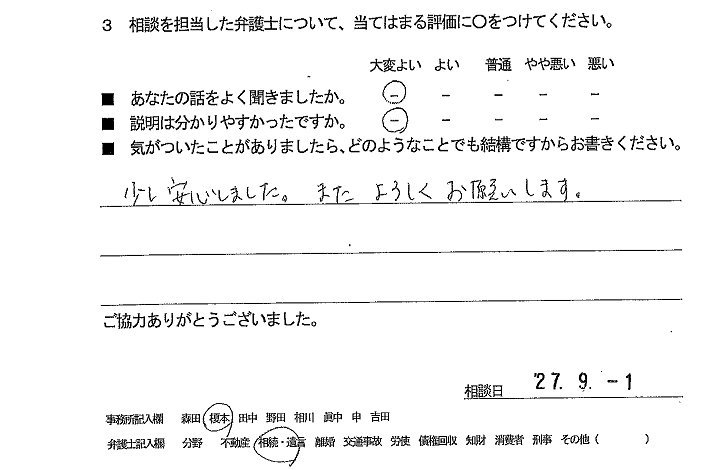 3 相談を担当した弁護士について、当てはまる評価に○をつけてください。
大変よい よい 普通 やや悪い 悪い
■ あなたの話をよく聞きましたか。 － － － － －
■ 説明は分かりやすかったですか。 － － － － －
■ 気がついたことがありましたら、どのようなことでも結構ですからお書きください。
少し安心しました。またよろしくお願いします。
ご協力ありがとうございました。
相談日 '27. 9. -1
事務所記入欄 森田 榎本 田中 野田 相川 眞中 申 吉田
弁護士記入欄 分野 不動産 相続・遺言 離婚 交通事故 労使 債権回収 知財 消費者 刑事 その他（ ）